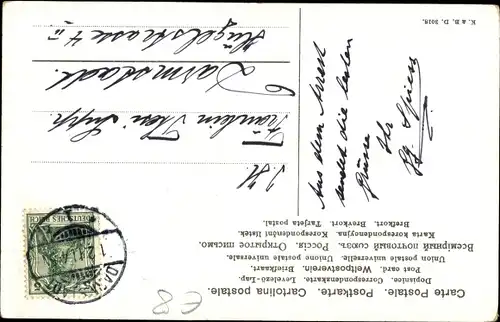 Carte Postale. Postkarte. Cartolina postale.
Dopisnice. Correspondenzkarte. Levelező-Lap.
Post card. Weltpostverein. Briefkaart.
Union postale universelle. Unione postale universale.
Всемірный почтовый союзъ. Россія. Открытое письмо.
Karta korespondencyjna. Korespondenční lístek.
Brefkort. Brevkort. Tarjeta postal.
K. & B. D. 3018.
Aus dem Arrest
sendet die besten
Grüsse
Ihr
Fräulein
Darmstadt.
Hügelstrasse
DEUTSCHES REICH
5
E8